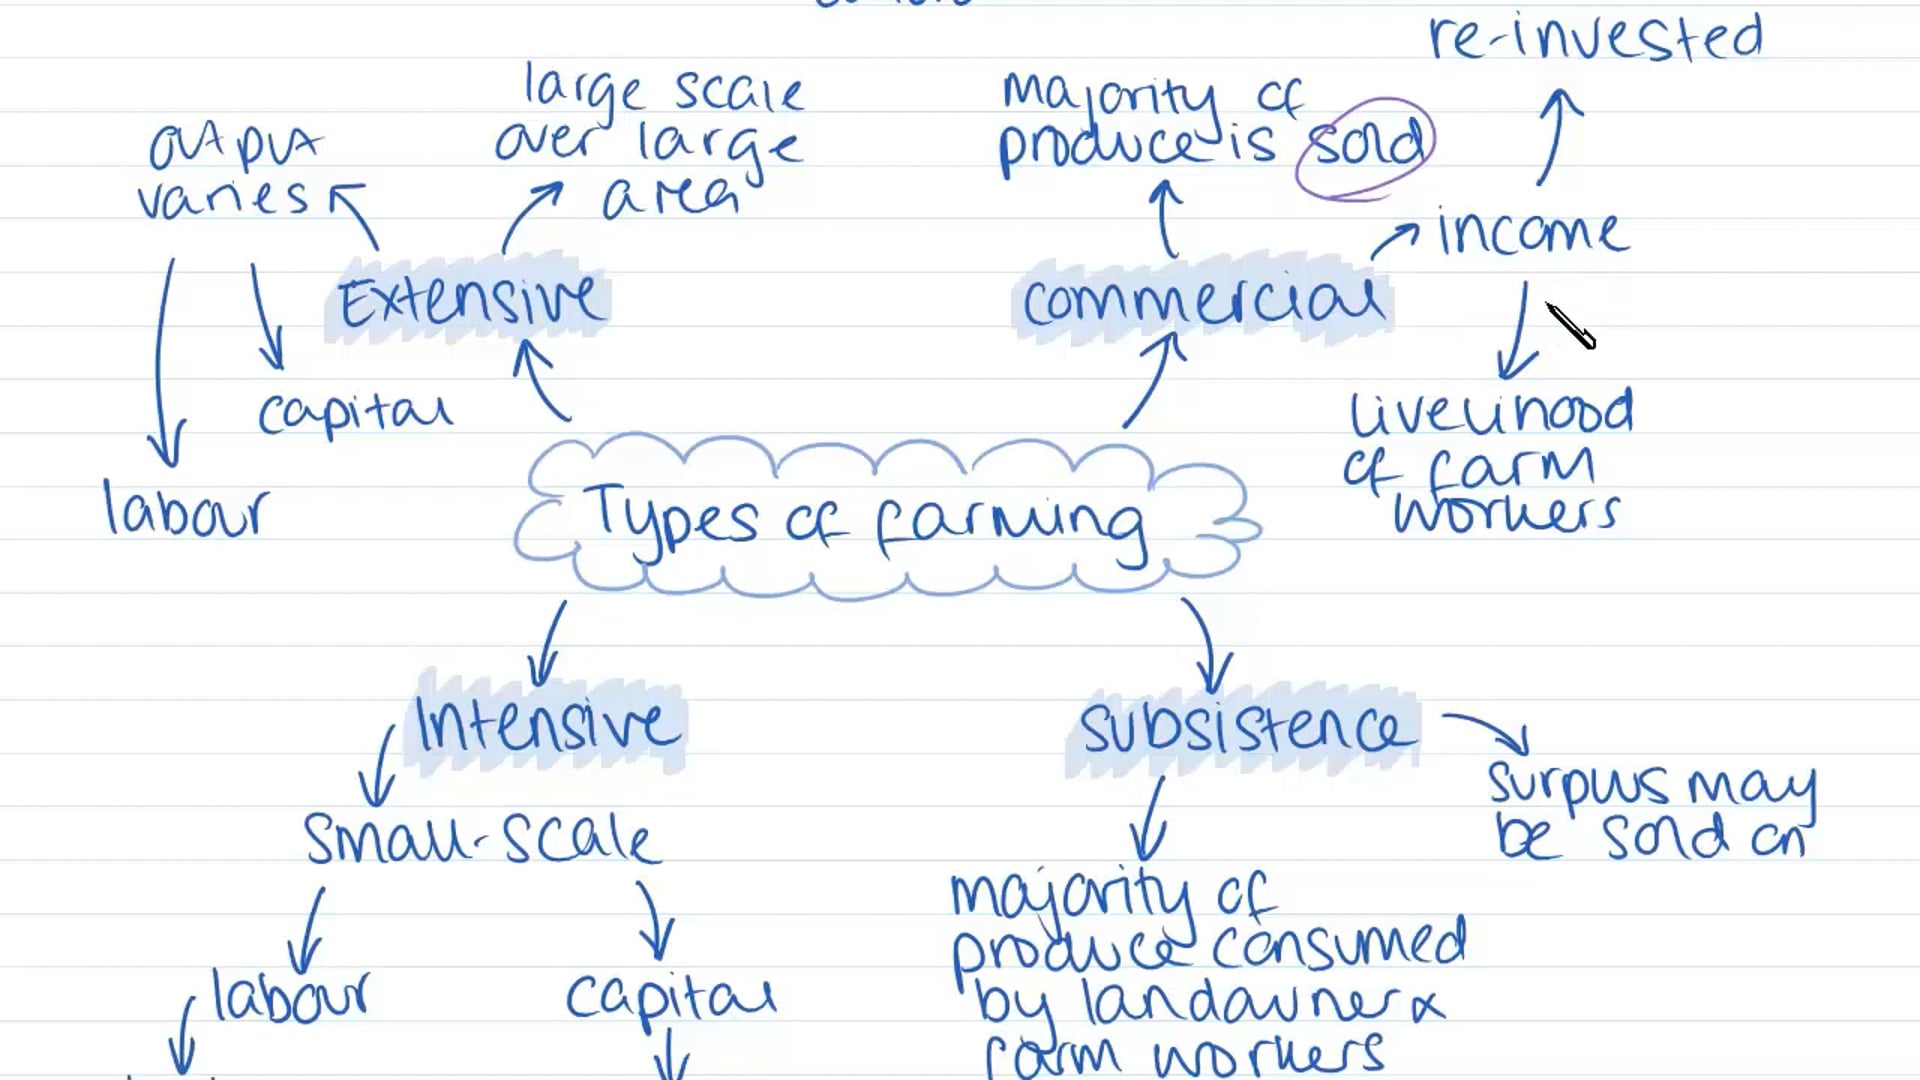 re-invested
large scale
over large
area
majority of
produce is sold
output
varies
income
Extensive
commercial
capital
livelihood
of farm
workers
labour
Types of farming
Intensive
subsistence
surplus may
be sold on
small-scale
majority of
produce consumed
by landowner &
farm workers
labour
capital